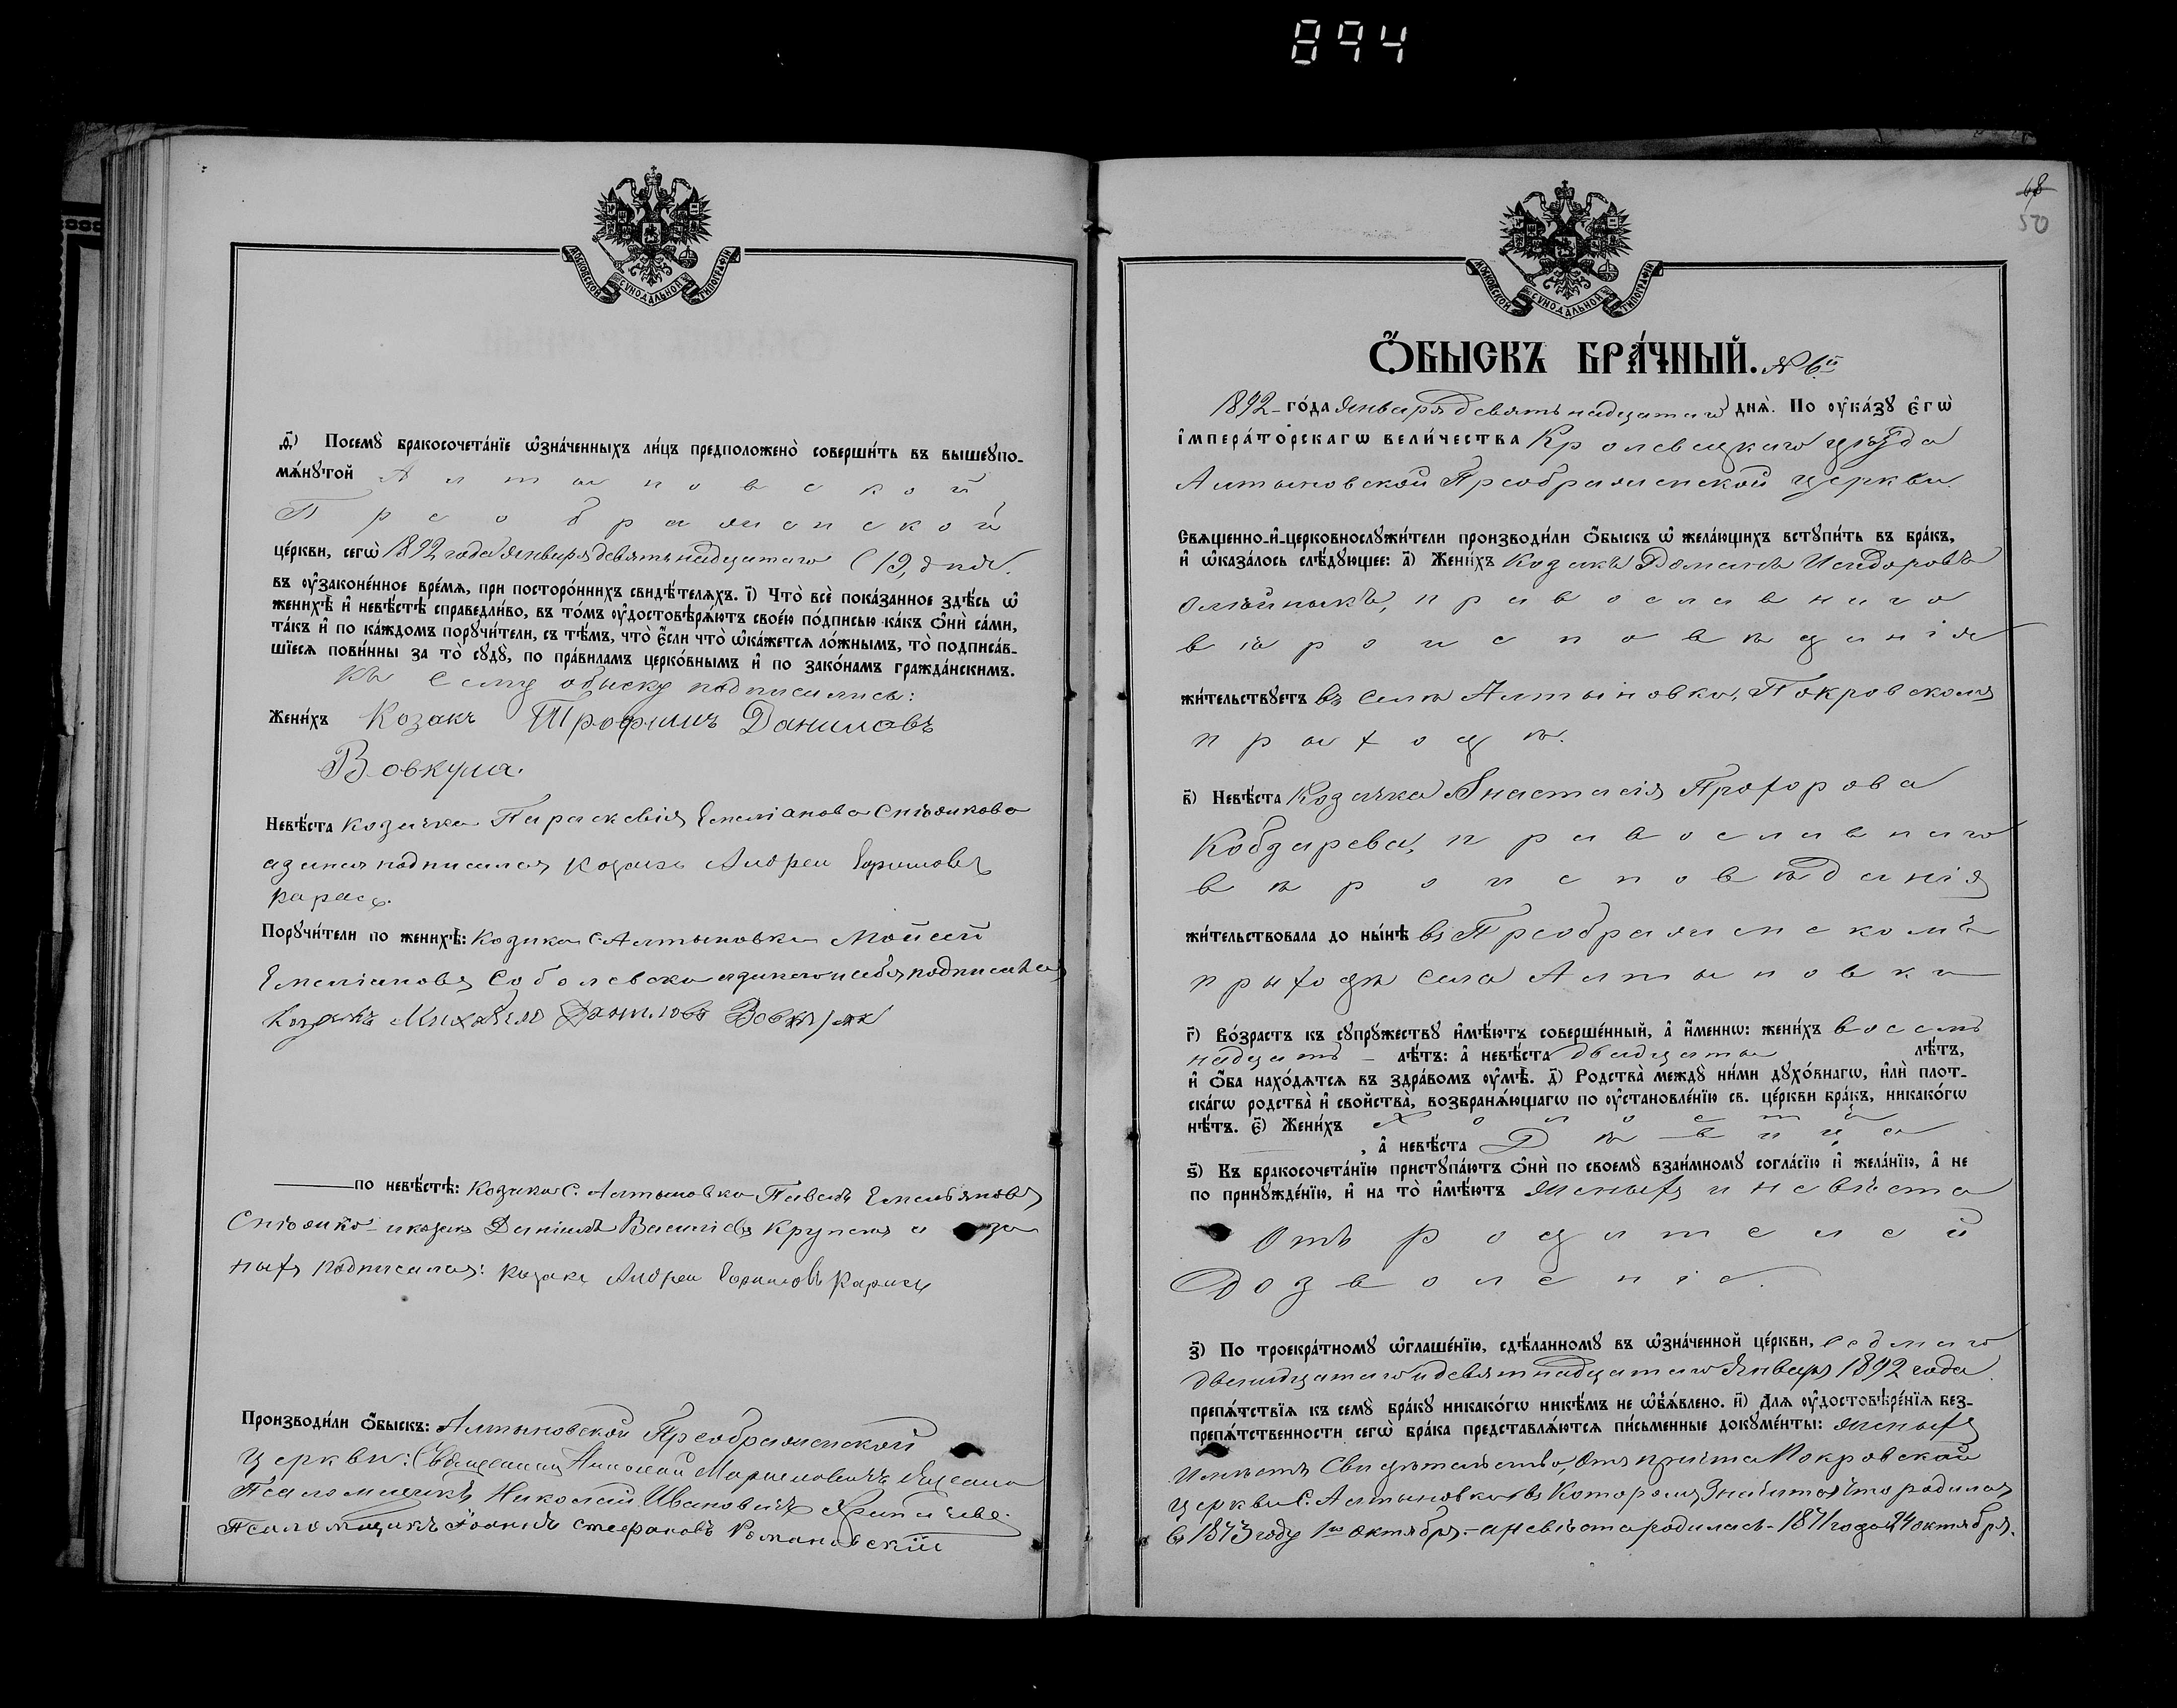 894
МОСКОВСКОЙ СУНОДАЛЬНОЙ ТИПОГРАФІИ
д҃і) Посемꙋ̀ бракосочета́нїе ѡ҆зна́ченныхъ ли́цъ предположено̀ соверши́ть въ вышеꙋпо-
мѧ́нꙋтой Алтыновской
Преображенской
це́ркви, сегѡ̀ 1892 года Января девятнадцатаго (19) дня.
въ ᲂу҆законе́нное вре́мѧ, при посторо́ннихъ свидѣ́телѧхъ. і҃) Что̀ всѐ пока́занное здѣ́сь ѡ҆
женихѣ̀ и҆ невѣ́стѣ справедли́во, въ то́мъ ᲂу҆достовѣрѧ́ютъ свое́ю по́дписью ка́къ ѻ҆нѝ са́ми,
та́къ и҆ по ка́ждомъ порꙋчи́тели, съ тѣ́мъ, что̀ є҆́сли что̀ ѡ҆ка́жетсѧ ло́жнымъ, то̀ подписа́в-
шїесѧ пови́нны за то̀ сꙋдꙋ̀, по пра́виламъ церко́внымъ и҆ по зако́намъ гражда́нскимъ.
Къ сему обыску подписались:
Жени́хъ Козакъ Трофимъ Даниловъ
Вовкума.
Невѣ́ста козачка Параскевія Емеліанова
а за нея подписался козакъ Андрей Ефимовъ
Карась.
Порꙋчи́тели по женихѣ̀: Козаки с. Алтыновки Мойсей
Емеліановъ Соболевскій а за него и себя подписался
Козакъ Михаилъ
по невѣ́стѣ: Козаки с. Алтыновки Павелъ Емельяновъ
и козакъ Даніилъ Василіевъ а за
нихъ подписался: козакъ Андрей Ефимовъ Карась
Производи́ли ѻ҆́быскъ: Алтыновской Преображенской
церкви: Священникъ Николай
Псаломщикъ Николай Ивановичъ
Псаломщикъ Іоаннъ Стефановъ Романовскій
68
50
МОСКОВСКОЙ СУНОДАЛЬНОЙ ТИПОГРАФІИ
Ѻ҆́БЫСКЪ БРА́ЧНЫЙ. № 6й
1892 го́да Января девятнадцатаго днѧ̀. По ᲂу҆ка́зꙋ є҆гѡ̀
і҆мпера́торскагѡ вели́чества Кролевецкаго уѣзда
Алтыновской Преображенской церкви.
Свѧщенно-и҆-церковнослꙋжи́тели производи́ли ѻ҆́быскъ ѡ҆ жела́ющихъ встꙋпи́ть въ бра́къ,
и҆ ѡ҆каза́лось слѣ́дꙋющее: а҃) Жени́хъ Козакъ Исидоровъ
Олѣйникъ, православнаго
вѣроисповѣданія
жи́тельствꙋетъ въ селѣ Алтыновкѣ, Покровскомъ
приходѣ.
в҃) Невѣ́ста Козачка Анастасія Прохорова
Кобзарева, православнаго
вѣроисповѣданія
жи́тельствовала до ны́нѣ въ Преображенскомъ
приходѣ села Алтыновки
г҃) Во́зрастъ къ сꙋпрꙋ́жествꙋ и҆мѣ́ютъ соверше́нный, а҆ и҆́меннѡ: жени́хъ восем-
надцать – лѣ́тъ: а҆ невѣ́ста двадцать лѣ́тъ,
и҆ ѻ҆́ба нахо́дѧтсѧ въ здра́вомъ ᲂу҆мѣ̀. д҃) Родства̀ междꙋ̀ ни́ми дꙋхо́внагѡ, и҆лѝ плот-
ска́гѡ родства̀ и҆ свойства̀, возбранѧ́ющагѡ по ᲂу҆становле́нїю св. це́ркви бра́къ, никако́гѡ
нѣ́тъ. є҃) Жени́хъ холостъ
, а҆ невѣ́ста Дѣвица
ѕ҃) Къ бракосочета́нїю пристꙋпа́ютъ ѻ҆нѝ по своемꙋ̀ взаи́мномꙋ согла́сїю и҆ жела́нїю, а҆ не
по принꙋжде́нїю, и҆ на то̀ и҆мѣ́ютъ женихъ и невѣста
Отъ родителей
Дозволеніе.
з҃) По троекра́тномꙋ ѡ҆глаше́нїю, сдѣ́ланномꙋ въ ѡ҆зна́ченной це́ркви, седмаго
двенадцатаго и девятнадцатаго Января 1892 года
препѧ́тствїѧ къ семꙋ̀ бра́кꙋ никако́гѡ никѣ́мъ не ѡ҆б̾ѧ́влено. и҃) Длѧ ᲂу҆достовѣре́нїѧ без-
препѧ́тственности сегѡ̀ бра́ка представлѧ́ютсѧ пи́сьменные докꙋме́нты: женихъ
имѣетъ Свидѣтельство, отъ причта Покровской
церкви С. Алтыновки въ Которомъ Значится что родился
въ 1873 году 1го октября – а невѣста родилась – 1871 года 24 октября.